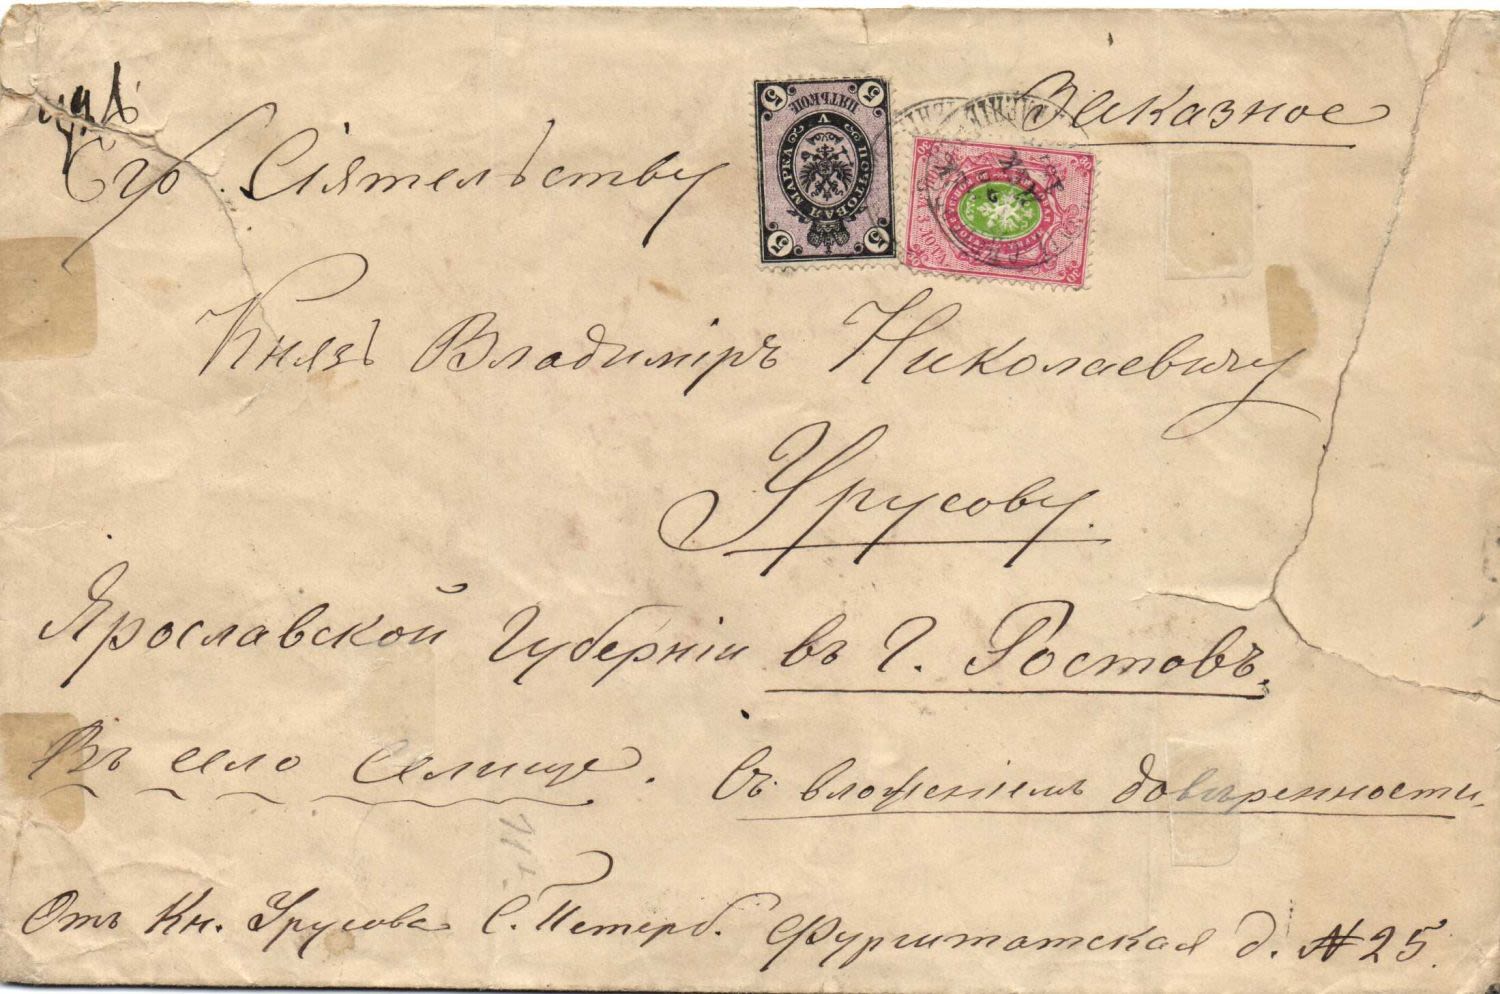 Заказное
Его Сіятельству
Князь Владиміръ Николаевичу
Урусову.
Ярославской Губерніи въ г. Ростовъ.
Въ село Селище. Съ вложеніемъ довѣренности.
Отъ Кн. Урусова С. Петерб. Фурштатская д. № 25.
5 ПЯТЬ КОП. 5
ПОЧТОВАЯ МАРКА
5 5
30 30
30 30